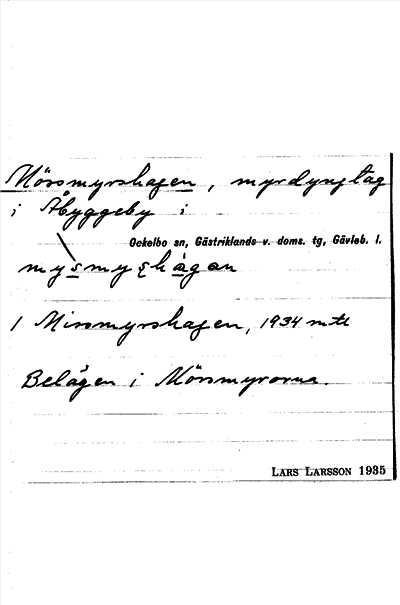 Mörsmyrshagen, myrdyngtag
i Åbyggeby i
Ockelbo sn, Gästriklands v. doms. tg, Gävleb. l.
1 Mirsmyrshagen, 1934 mtl
Belägen i Mörsmyrorna.
LARS LARSSON 1935